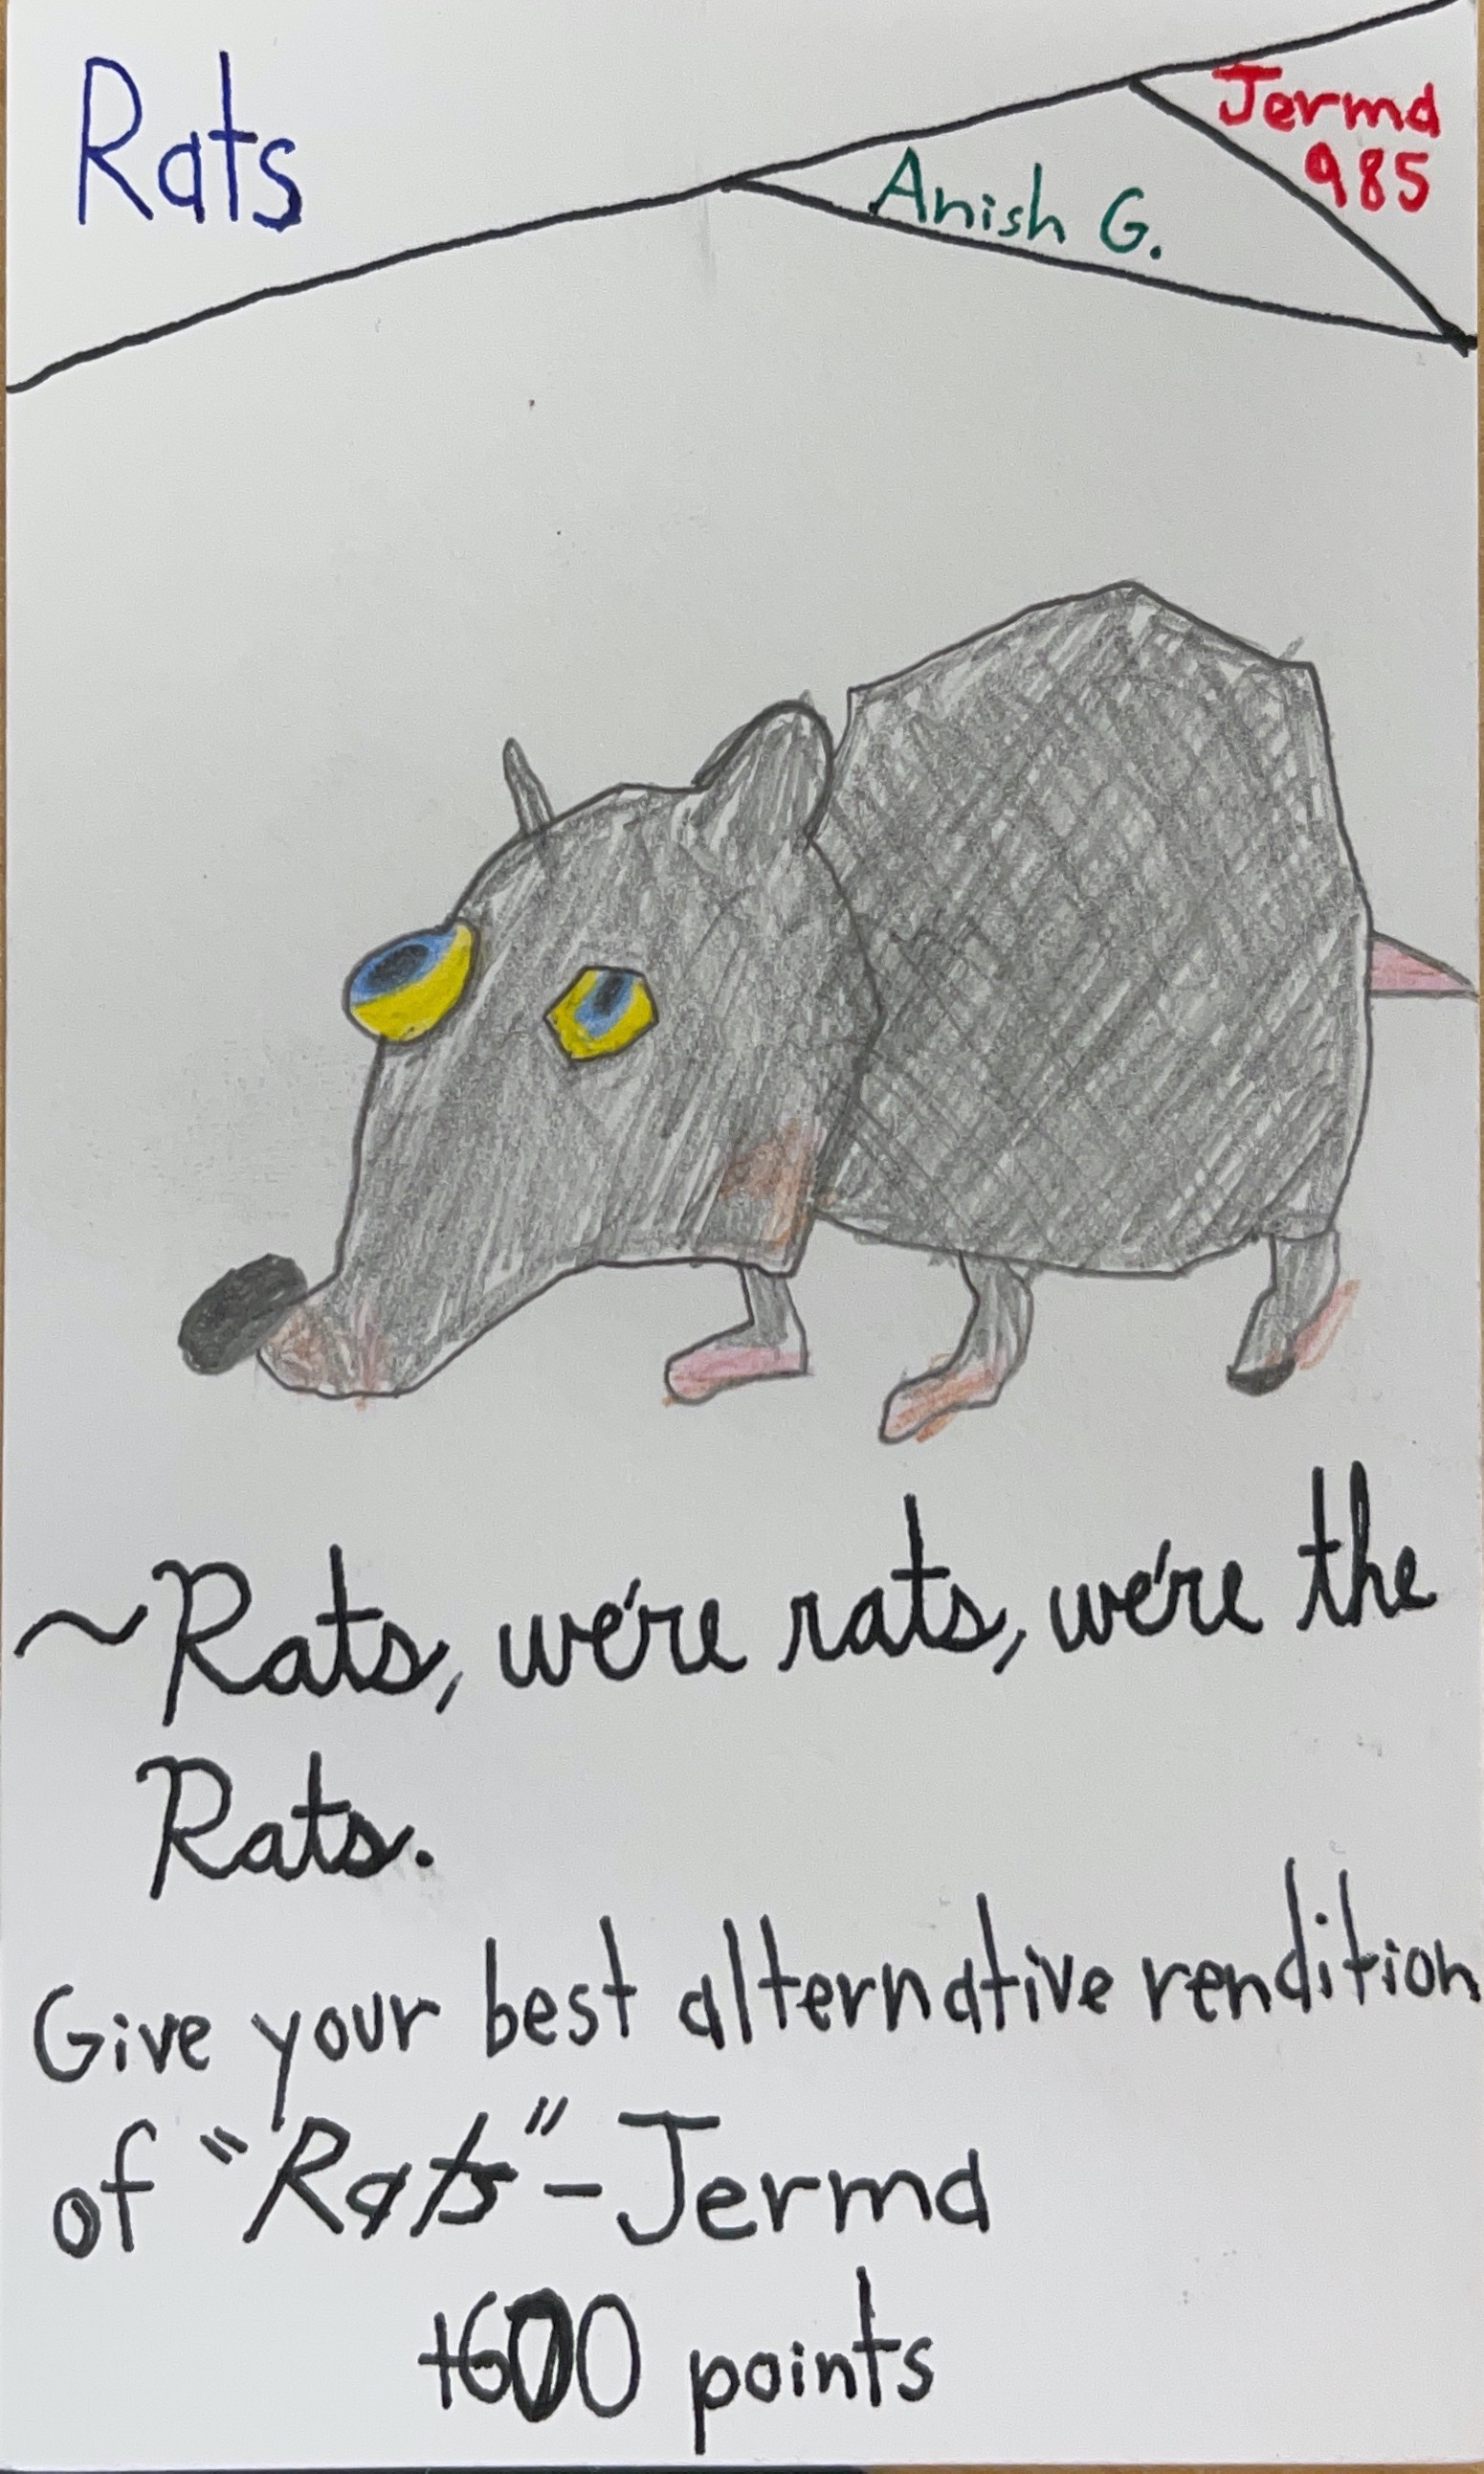 Rats
Anish G.
Jerma
985
~Rats, we're rats, we're the
Rats.
Give your best alternative rendition
of "Rats"-Jerma
+600 points